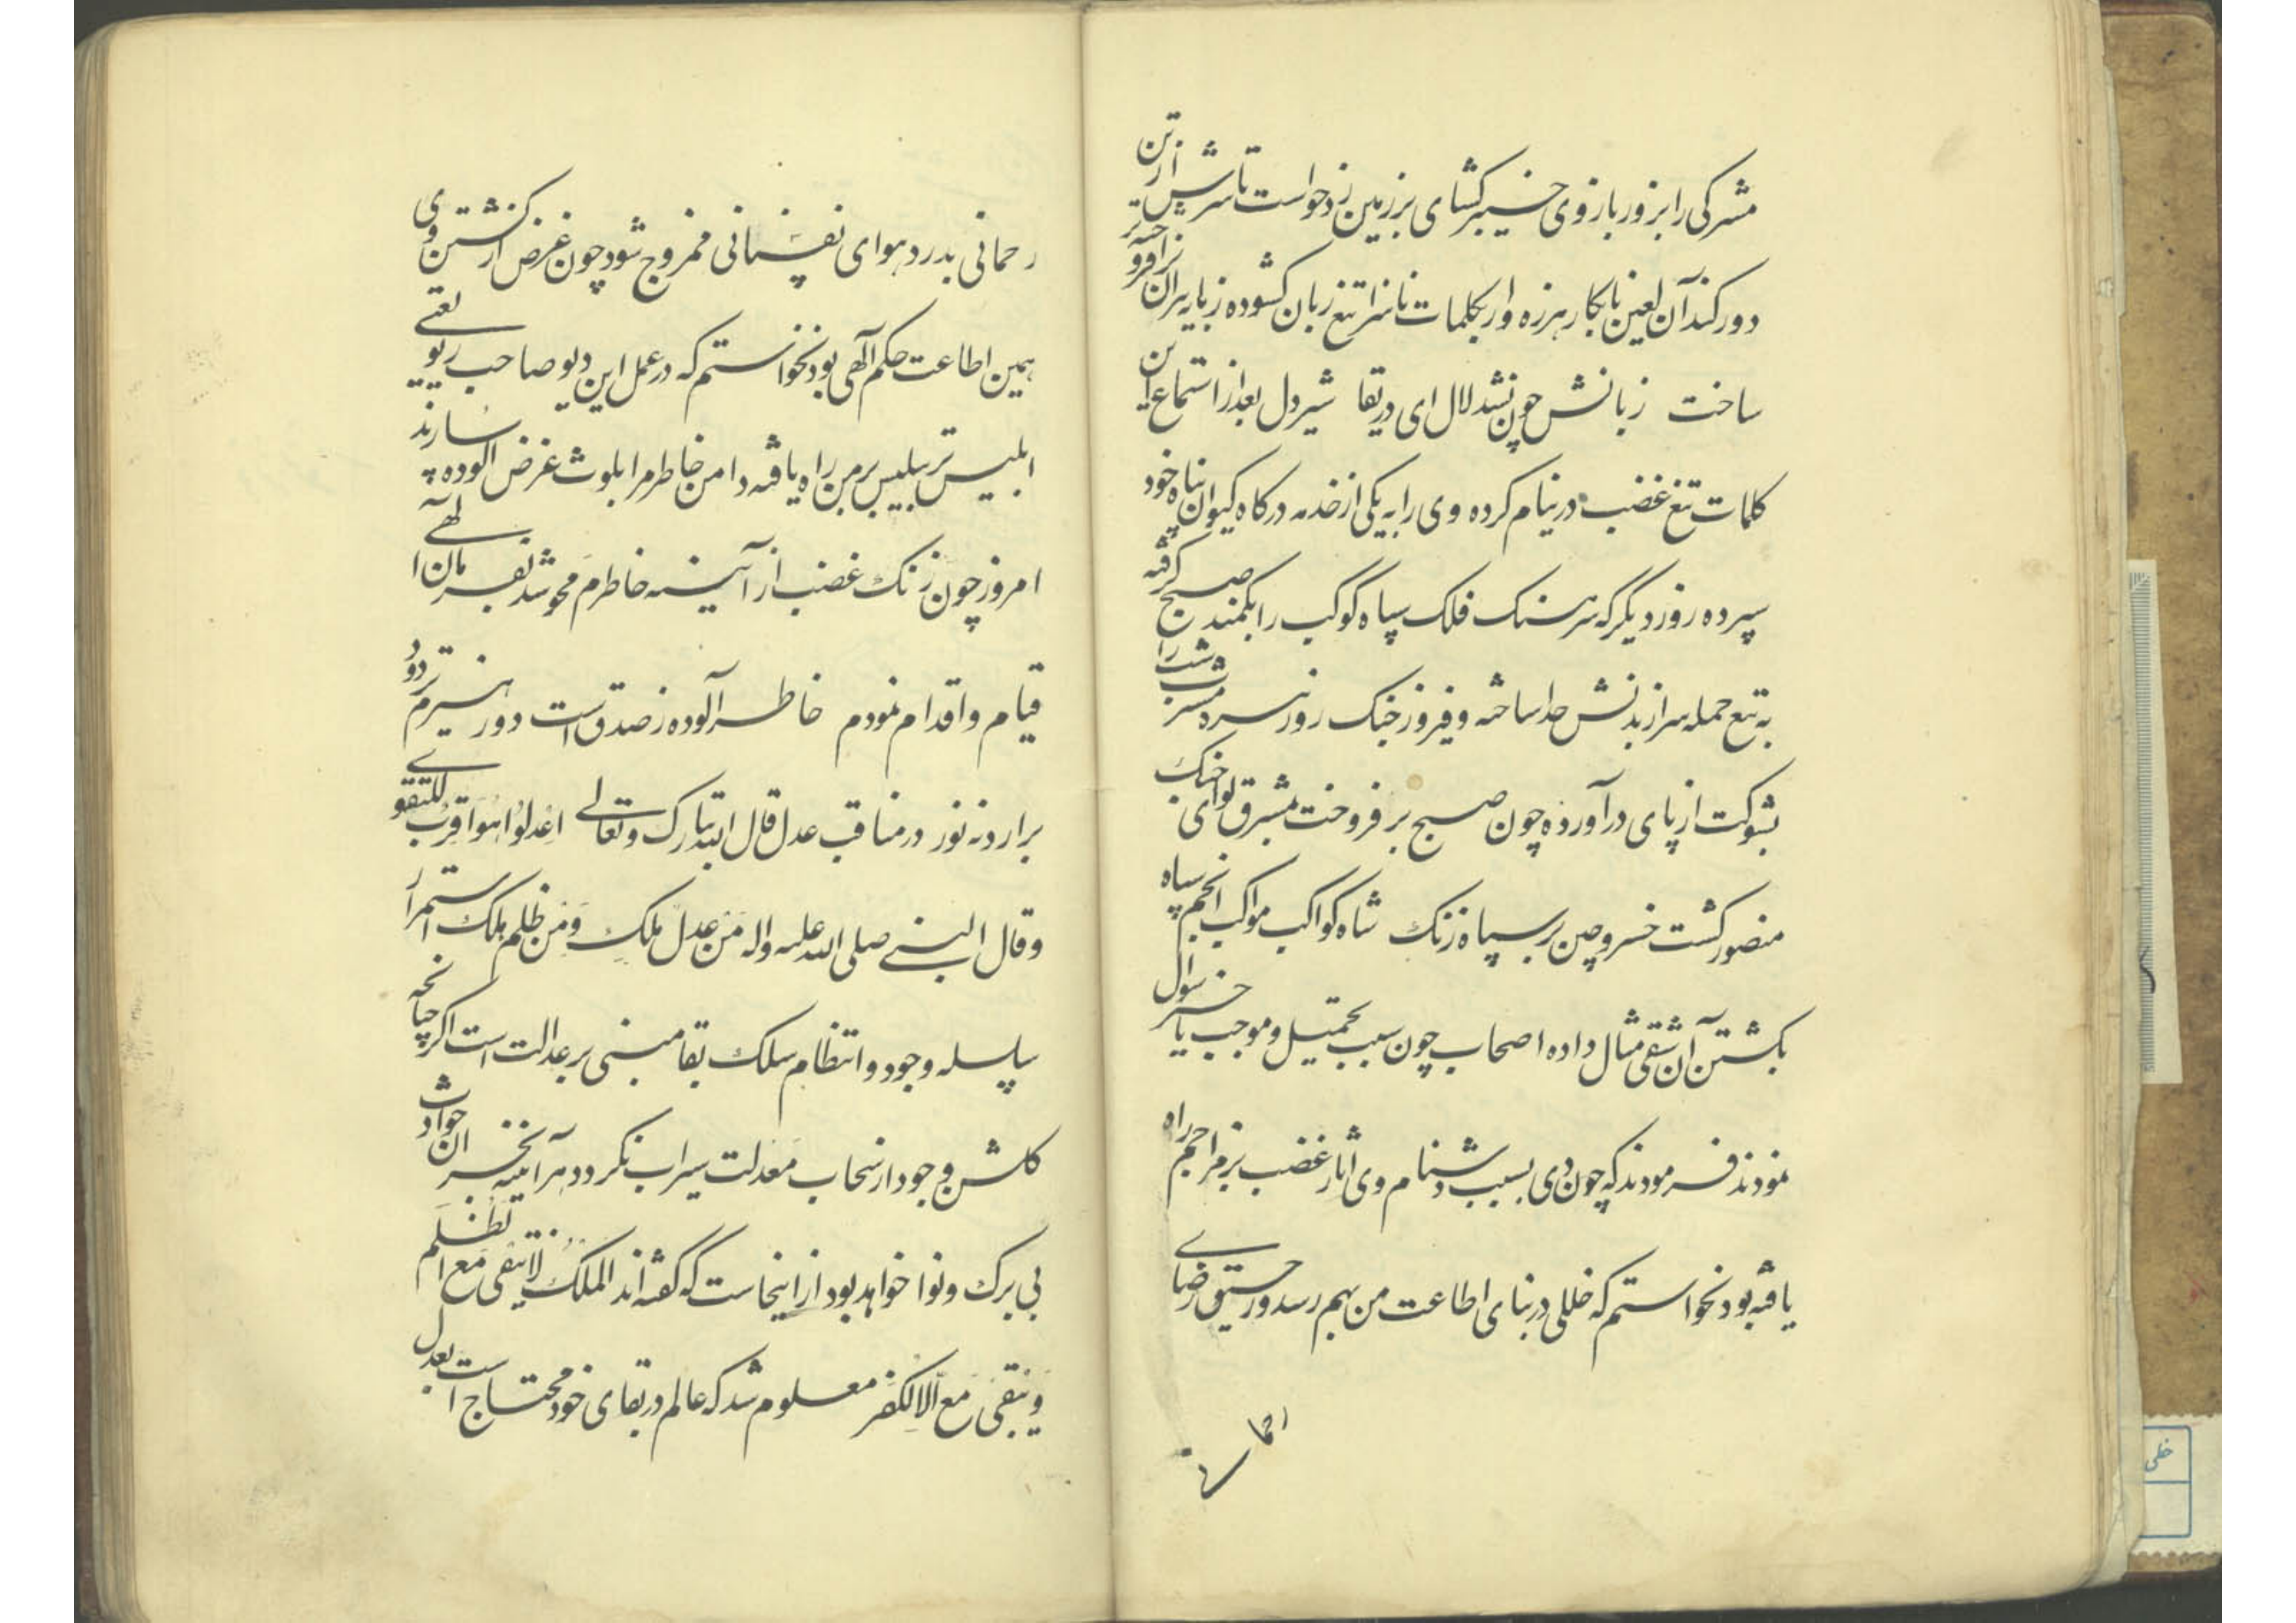 مشرکی را بزور بازوی خیبر کشای بر زمین زد خواست تا سرش از تن
دور کند آن لعین نابکار هرزه وار بکلمات ناسزا تیغ زبان کشوده
ساخت زبانش چون نشد لال ای دریغا شیر دل بعد از استماع این
کلمات تیغ غضب در نیام کرده وی را به یکی از خدمه درکاه کیوان پناه خود
سپرده روز دیگر که سرهنک فلک سپاه کوکب را بکمند صبح کرفته
به تیغ حمله سر از بدنش جدا ساخته و فیروز جنک روز سر دمشرب شب را
بشوکت از پای در آورده چون صبح بر فروخت بمشرق لوای جنک
منصور کشت خسرو چین بر سپاه زنک شاه کواکب مواکب انجم سپاه
بکشتن آن شقی مثال داده اصحاب چون سبب تحمیل و موجب تاخیر سوال
نمودند فرمودند که چون دی بسبب دشنام وی آثار غضب بر مزاجم راه
یافته بود نخواستم که خللی در بنای اطاعت من بهم رسد و رحیق رضای
رحمانی
رحمانی بدرد هوای نفسانی ممزوج شود چون غرض از کشتن وی
همین اطاعت حکم آلهی بود نخواستم که در عمل این دیو صاحب ریو یعنی
ابلیس پر تلبیس بر من راه یافته دامن خاطرم را بلوث غرض آلوده سازند
امروز چون زنک غضب از آیینه خاطرم محو شد بفرمان الهی
قیام و اقدام نمودم خاطر آلوده ز صدق است دور هیزم تر دود
برارد نه نور در مناقب عدل قال الله تبارک و تعالی اعدلوا هو اقرب للتقوی
و قال النبی صلی الله علیه واله من عدل ملک و من ظلم هلک استمرار
سلسله وجود و انتظام سلک بقا مبنی بر عدالت است اکر چنانچه
کلشن وجود از سحاب معدلت سیراب نکردد هر آینه خزان حوادث
بی برک و نوا خواهد بود از اینجاست که کفته اند الملک لا یبقی مع الظلم
و یبقی مع الکفر معلوم شد که عالم در بقای خود محتاج است بعدل